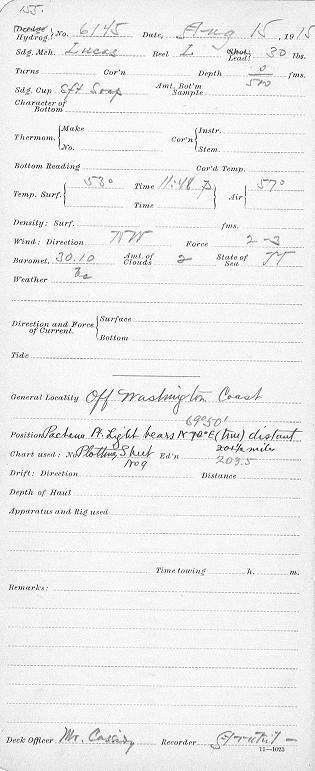 Dredge
Hydrog. } No. 6145 Date, Aug 15, 1915
Sdg. Mch. Lucas Reel L Shot Lead 30 lbs.
Turns Cor'n Depth 0/500 fms.
Sdg. Cup Soap Amt. Bot'm Sample
Character of Bottom
Thermom. { Make No. Cor'n { Instr. Stem.
Bottom Reading Cor'd Temp.
Temp. Surf. { 53° Time 11:48 P Time } Air { 57°
Density: Surf. fms.
Wind: Direction NW Force 2-3
Baromet. 30.10 Amt. of Clouds 2 State of Sea
Weather bc
Direction and Force of Current. { Surface Bottom
Tide
General Locality Off Washington Coast
69°50'
Position Pachena Pt. Light bears N 70° E (true) distant
Chart used: No. Plotting Sheet Ed'n 204½ miles
No 9 203.5
Drift: Direction Distance
Depth of Haul
Apparatus and Rig used
Time towing h. m.
Remarks:
Deck Officer Mr. Cassidy Recorder
11—1023